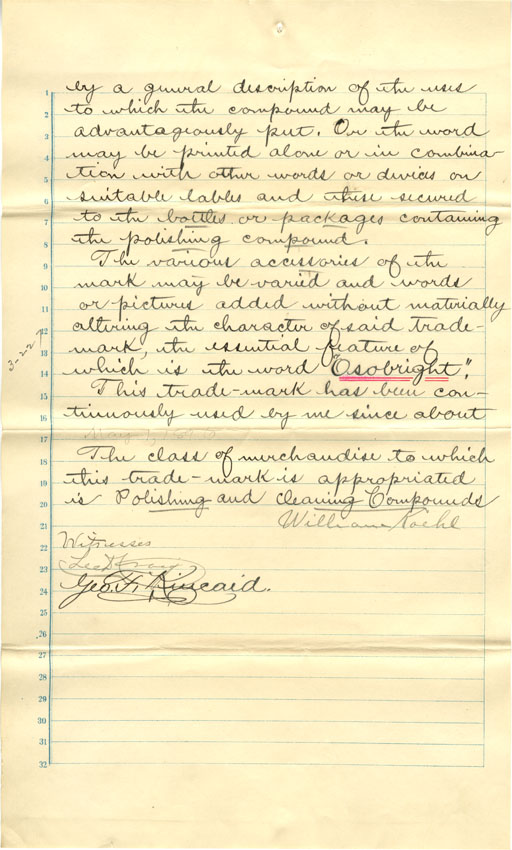 by a general description of the uses
to which the compound may be
advantageously put. Or the word
may be printed alone or in combina-
tion with other words or devices on
suitable lables and these secured
to the bottles or packages containing
the polishing compound.
The various accessories of the
mark may be varied and words
or pictures added without materially
altering the character of said trade-
mark, the essential feature of
which is the word "Osobright".
This trade-mark has been con-
tinuously used by me since about
The class of merchandise to which
this trade-mark is appropriated
is Polishing and Cleaning Compounds
William Koehl
Witnesses
Geo. F. Kincaid.
1
2
3
4
5
6
7
8
9
10
11
12
13
14
15
16
17
18
19
20
21
22
23
24
25
26
27
28
29
30
31
32